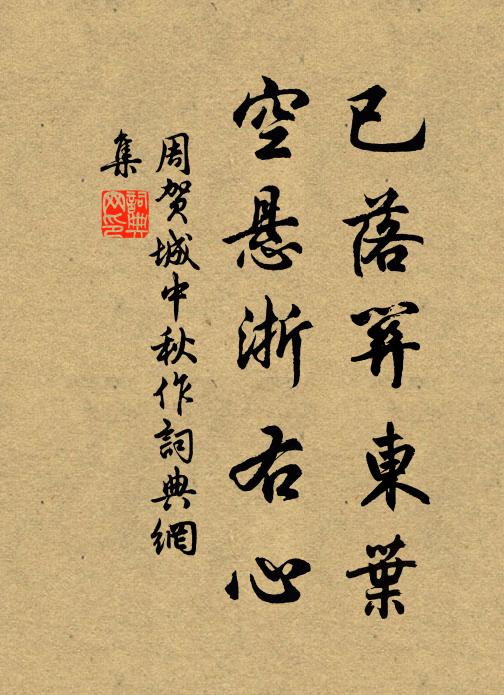 已落關東葉
空懸浙右心
周賀城中秋作詞典網
集
詞典
网印